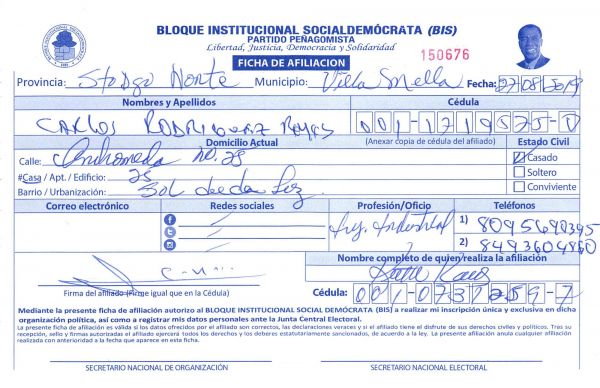 BLOQUE INSTITUCIONAL SOCIALDEMÓCRATA (BIS)
PARTIDO PEÑAGOMISTA
Libertad, Justicia, Democracia y Solidaridad
FICHA DE AFILIACION
150676
Provincia: Stodgo Norte Municipio: Villa Mella Fecha: 27/08/2019
Nombres y Apellidos Cédula
CARLOS RODRIGUEZ REYES 001-1719575-0
Domicilio Actual (Anexar copia de cédula del afiliado) Estado Civil
Calle: Andromeda no. 28 Casado
#Casa / Apt. / Edificio: 28 Soltero
Barrio / Urbanización: Sol de la Luz Conviviente
Correo electrónico Redes sociales Profesión/Oficio Teléfonos
Ing. Industrial 1) 8095690395
2) 8493604860
Nombre completo de quien realiza la afiliación
Firma del afiliado (Firme igual que en la Cédula) Cédula: 001-0737259-7
Mediante la presente ficha de afiliación autorizo al BLOQUE INSTITUCIONAL SOCIAL DEMÓCRATA (BIS) a realizar mi inscripción única y exclusiva en dicha
organización política, así como a registrar mis datos personales ante la Junta Central Electoral.
La presente ficha de afiliación es válida si los datos ofrecidos por el afiliado son correctos, las declaraciones veraces y si el afiliado tiene el disfrute de sus derechos civiles y políticos. Tras su
recepción, sello y firmas autorizadas el afiliado ejercerá todos los derechos y los deberes estatutariamente sancionados, de acuerdo a la ley. La presente afiliación anula cualquier afiliación
realizada con anterioridad a la fecha que aparece en esta ficha.
SECRETARIO NACIONAL DE ORGANIZACIÓN SECRETARIO NACIONAL ELECTORAL